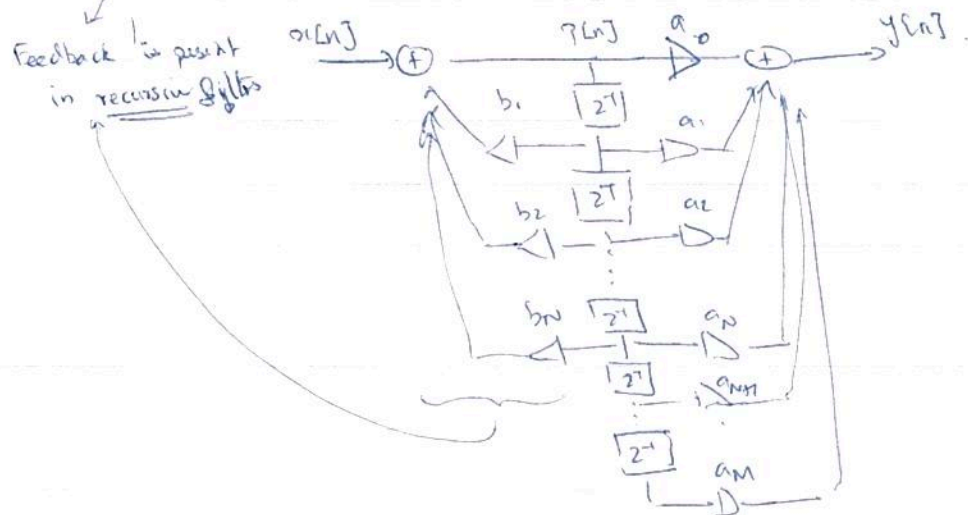 Feedback is present
in recursive filters
x[n] q[n] a0 y[n]
+ +
z-1
b1 a1
z-1
b2 a2
bN z-1 aN
z-1
aN+1
z-1 aM